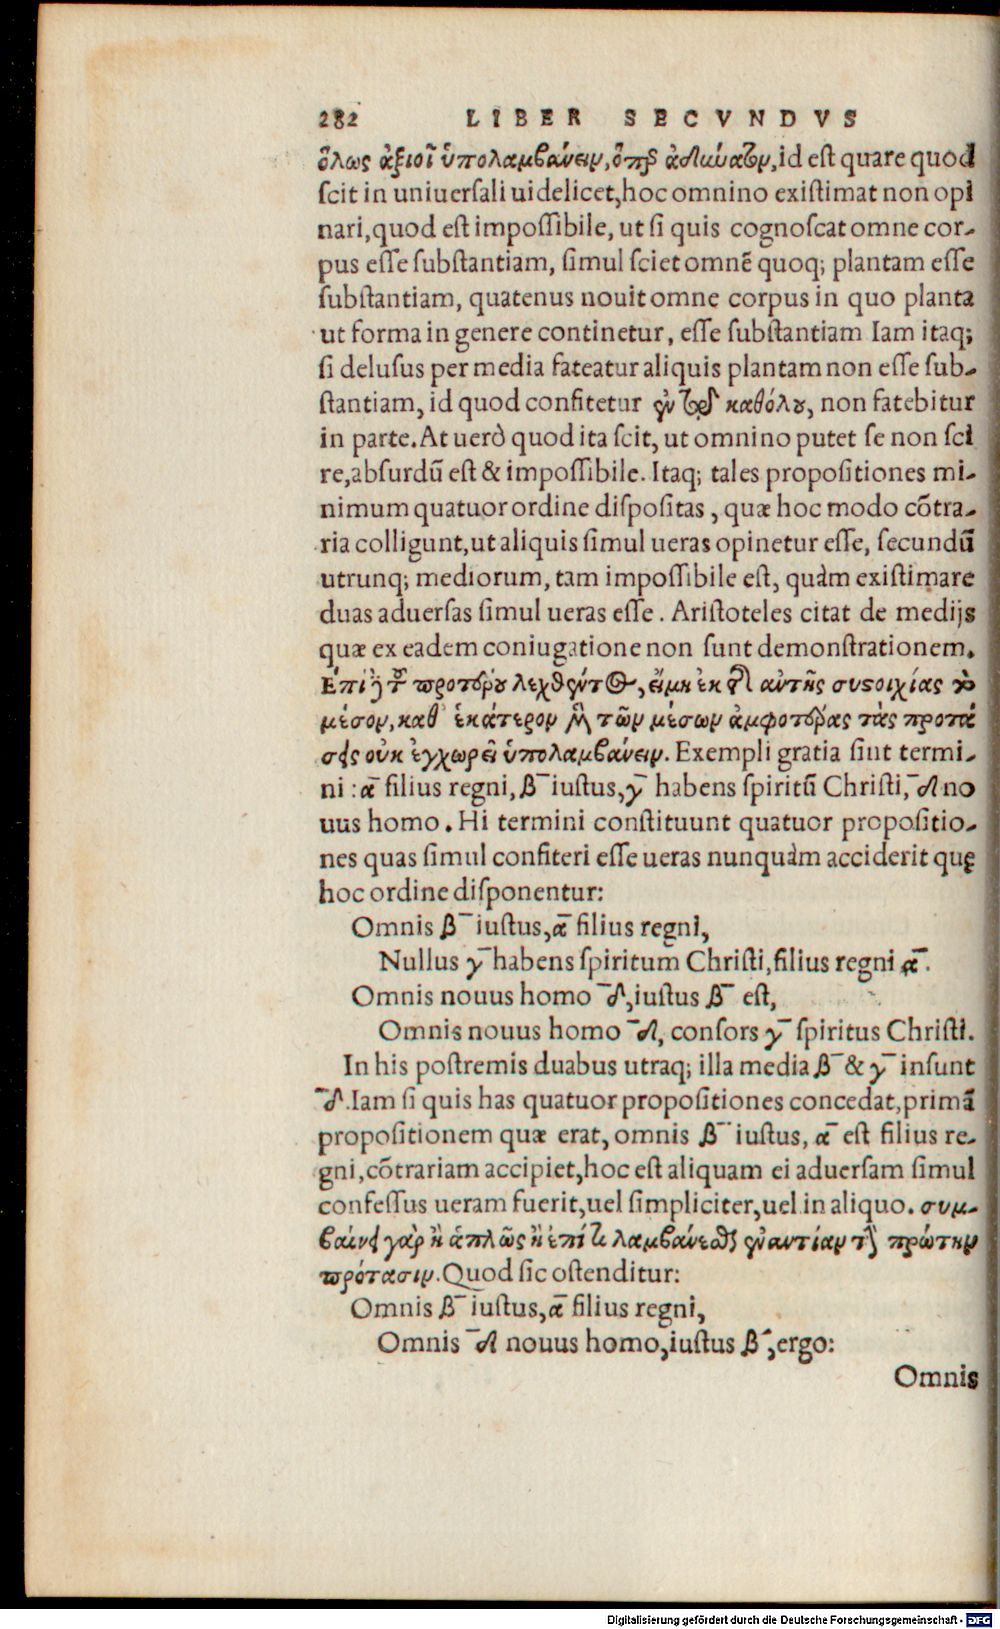 282 LIBER SECVNDVS
ὅλως ἀξιοῖ ὑπολαμβάνειν, ὅπερ ἀδύνατον, id est quare quod
scit in uniuersali uidelicet, hoc omnino existimat non opi
nari, quod est impossibile, ut si quis cognoscat omne cor-
pus esse substantiam, simul sciet omnē quoq; plantam esse
substantiam, quatenus nouit omne corpus in quo planta
ut forma in genere continetur, esse substantiam Iam itaq;
si delusus per media fateatur aliquis plantam non esse sub-
stantiam, id quod confitetur ἐν τῷ καθόλου, non fatebitur
in parte. At uerò quod ita scit, ut omnino putet se non sci
re, absurdū est & impossibile. Itaq; tales propositiones mi-
nimum quatuor ordine dispositas, quæ hoc modo cōtra-
ria colligunt, ut aliquis simul ueras opinetur esse, secundū
utrunq; mediorum, tam impossibile est, quàm existimare
duas aduersas simul ueras esse. Aristoteles citat de medijs
quæ ex eadem coniugatione non sunt demonstrationem.
Ἐπὶ δὲ τοῦ προτέρου λεχθέντος, εἰ μὴ ἐκ τῆς αὐτῆς συστοιχίας τὸ
μέσον, καθ᾽ ἑκάτερον μὲν τῶν μέσων ἀμφοτέρας τὰς προτά
σεις οὐκ ἐγχωρεῖ ὑπολαμβάνειν. Exempli gratia sint termi-
ni: α‾ filius regni, β‾ iustus, γ‾ habens spiritū Christi, ‾δ no
uus homo. Hi termini constituunt quatuor propositio-
nes quas simul confiteri esse ueras nunquàm acciderit quę
hoc ordine disponentur:
Omnis β‾ iustus, α‾ filius regni,
Nullus γ‾ habens spiritum Christi, filius regni α‾.
Omnis nouus homo ‾δ, iustus β‾ est,
Omnis nouus homo ‾δ, consors γ‾ spiritus Christi.
In his postremis duabus utraq; illa media β‾ & γ‾ insunt
‾δ. Iam si quis has quatuor propositiones concedat, primā
propositionem quæ erat, omnis β‾ iustus, α‾ est filius re-
gni, cōtrariam accipiet, hoc est aliquam ei aduersam simul
confessus ueram fuerit, uel simpliciter, uel in aliquo. συμ-
βαίνει γὰρ ἢ ἁπλῶς ἢ ἐπί τι λαμβάνεσθαι ἐναντίαν τὴν πρώτην
πρότασιν. Quod sic ostenditur:
Omnis β‾ iustus, α‾ filius regni,
Omnis ‾δ nouus homo, iustus β‾, ergo:
Omnis
Digitalisierung gefördert durch die Deutsche Forschungsgemeinschaft - DFG